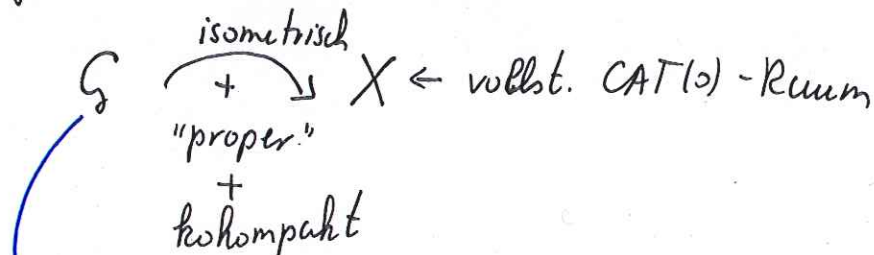 isometrisch
G + X ← vollst. CAT(0) - Raum
"proper"
+
kokompakt